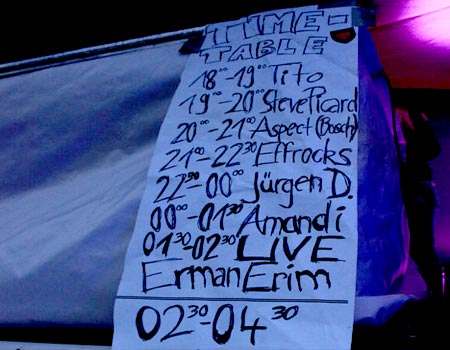 TIME-
TABLE
18⁰⁰-19⁰⁰ Tito
19⁰⁰-20⁰⁰ Steve Picard
20⁰⁰-21⁰⁰ Aspect (Bosch)
21⁰⁰-22³⁰ Effrocks
22³⁰-00⁰⁰ Jürgen D.
00⁰⁰-01³⁰ Amandi
01³⁰-02³⁰ LIVE
Erman Erim
02³⁰-04³⁰